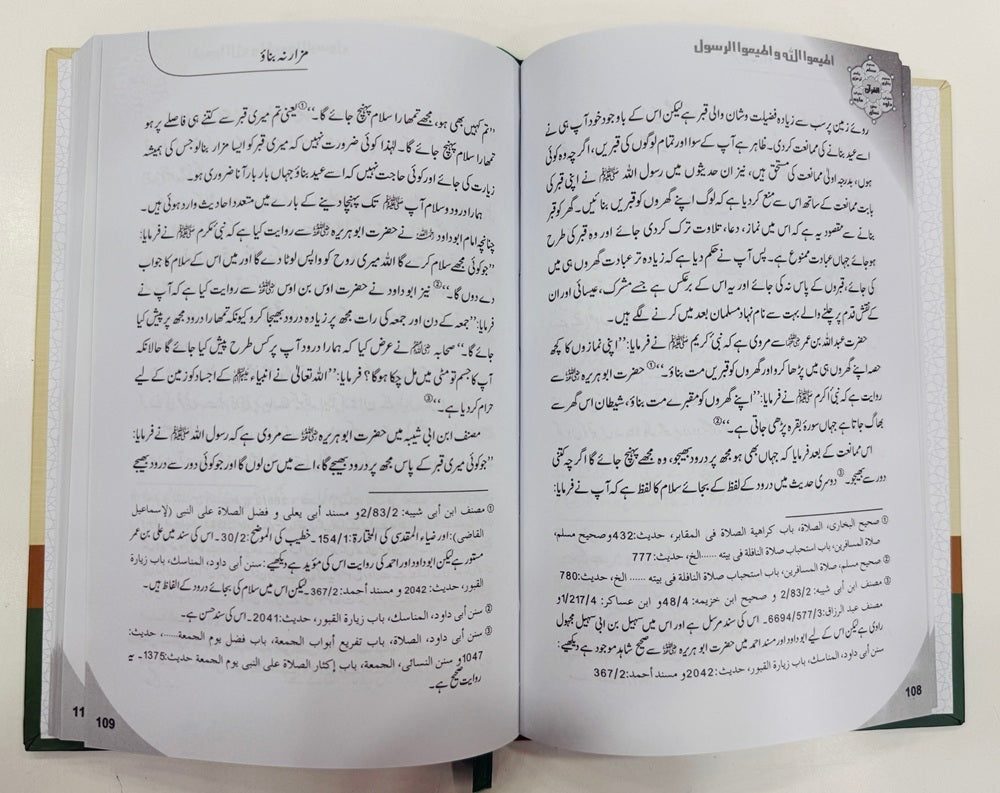 اطیعوا اللہ و اطیعوا الرسول
القرآن
روئے زمین پر سب سے زیادہ فضیلت وشان والی قبر ہے لیکن اس کے باوجود خود آپ ہی نے
اسے عید بنانے کی ممانعت کردی۔ ظاہر ہے آپ کے سوا اور تمام لوگوں کی قبریں، اگرچہ وہ کوئی
ہوں، بدرجہ اولیٰ ممانعت کی مستحق ہیں، نیز ان حدیثوں میں رسول اللہ ﷺ نے اپنی قبر کی
بابت ممانعت کے ساتھ اس سے منع کردیا ہے کہ لوگ اپنے گھروں کو قبریں بنائیں۔ گھر کو قبر
بنانے سے مقصود یہ ہے کہ اس میں نماز، دعا، تلاوت ترک کردی جائے اور وہ قبر کی طرح
ہوجائے جہاں عبادت ممنوع ہے۔ پس آپ نے حکم دیا ہے کہ زیادہ تر عبادت گھروں ہی میں
کی جائے، قبروں کے پاس نہ کی جائے اور یہ اس کے برعکس ہے جسے مشرک، عیسائی اور ان
کے نقش قدم پر چلنے والے بہت سے نام نہاد مسلمان بعد میں کرنے لگے ہیں۔
حضرت عبداللہ بن عمر ؓ سے مروی ہے کہ نبی کریم ﷺ نے فرمایا: ’’اپنی نمازوں کا کچھ
حصہ اپنے گھروں ہی میں پڑھا کرو اور گھروں کو قبریں مت بناؤ۔‘‘① حضرت ابوہریرہ ؓ سے
روایت ہے کہ نبی اکرم ﷺ نے فرمایا: ’’اپنے گھروں کو مقبرے مت بناؤ، شیطان اس گھر سے
بھاگ جاتا ہے جہاں سورۂ بقرہ پڑھی جاتی ہے۔‘‘②
اس ممانعت کے بعد فرمایا کہ جہاں بھی ہو مجھ پر درود بھیجو، وہ مجھے پہنچ جائے گا اگرچہ کتنی
دور سے بھیجو۔③ دوسری حدیث میں درود کے لفظ کے بجائے سلام کا لفظ ہے کہ آپ نے فرمایا:
① صحیح البخاری، الصلاة، باب كراهية الصلاة في المقابر، حديث:432 و صحيح مسلم،
صلاة المسافرين، باب استحباب صلاة النافلة في بيته ......الخ، حديث:777
② صحيح مسلم، صلاة المسافرين، باب استحباب صلاة النافلة في بيته ...... الخ، حديث:780
③ مصنف ابن أبي شيبه: 2/83/2 و صحيح ابن خزيمه: 48/4 و ابن عساكر: 217/4/1 و
مصنف عبد الرزاق:577/3/6694۔ اس کی سند مرسل ہے اور اس میں سہیل بن ابی سہیل مجہول
راوی ہے لیکن اس کے لیے ابوداود اور مسند احمد میں حضرت ابوہریرہ ؓ سے صحیح شاہد موجود ہے دیکھیے:
سنن أبي داود، المناسك، باب زيارة القبور، حديث:2042 و مسند أحمد:367/2
108
مزار نہ بناؤ
’’تم کہیں بھی ہو، مجھے تمھارا سلام پہنچ جائے گا۔‘‘① یعنی تم میری قبر سے کتنے ہی فاصلے پر ہو
تمھارا سلام پہنچ جائے گا۔ لہٰذا کوئی ضرورت نہیں کہ میری قبر کو ایسا مزار بنالو جس کی ہمیشہ
زیارت کی جائے اور کوئی حاجت نہیں کہ اسے عید بناؤ جہاں بار بار آنا ضروری ہو۔
ہمارا درود و سلام آپ ﷺ تک پہنچا دینے کے بارے میں متعدد احادیث وارد ہوئی ہیں۔
چنانچہ امام ابوداود ؒ نے حضرت ابوہریرہ ؓ سے روایت کیا ہے کہ نبی مکرم ﷺ نے فرمایا:
’’جو کوئی مجھے سلام کرے گا اللہ میری روح کو واپس لوٹا دے گا اور میں اس کے سلام کا جواب
دے دوں گا۔‘‘② نیز ابوداود نے حضرت اوس بن اوس ؓ سے روایت کیا ہے کہ آپ نے
فرمایا: ’’جمعہ کے دن اور جمعہ کی رات مجھ پر زیادہ درود بھیجا کرو کیونکہ تمھارا درود مجھ پر پیش کیا
جائے گا۔‘‘ صحابہ ؓ نے عرض کیا کہ ہمارا درود آپ پر کس طرح پیش کیا جائے گا حالانکہ
آپ کا جسم تو مٹی میں مل چکا ہوگا؟ فرمایا: ’’اللہ تعالیٰ نے انبیاء ؑ کے اجساد کو زمین کے لیے
حرام کردیا ہے۔‘‘③
مصنف ابن ابی شیبہ میں حضرت ابوہریرہ ؓ سے مروی ہے کہ رسول اللہ ﷺ نے فرمایا:
’’جو کوئی میری قبر کے پاس مجھ پر درود بھیجے گا، اسے میں سن لوں گا اور جو کوئی دور سے درود بھیجے
① مصنف ابن أبي شيبه: 2/83/2 و مسند أبي يعلى و فضل الصلاة على النبي (لإسماعيل
القاضي): اور ضیاء المقدی کی المختارة: 154/1۔ خطیب کی الموضح: 30/2۔ اس کی سند میں علی بن عمر
مستور ہے لیکن ابوداود اور احمد کی روایت اس کی مؤید ہے دیکھیے: سنن أبي داود، المناسك، باب زيارة
القبور، حديث: 2042 و مسند أحمد: 367/2۔ لیکن اس میں سلام کی بجائے درود کے الفاظ ہیں۔
② سنن أبي داود، المناسك، باب زيارة القبور، حديث: 2041۔ اس کی سند حسن ہے۔
③ سنن أبي داود، الصلاة، باب تفريع أبواب الجمعة، باب فضل يوم الجمعة......، حديث:
1047 و سنن النسائي، الجمعة، باب إكثار الصلاة على النبي يوم الجمعة حديث:1375۔ یہ
روایت صحیح ہے۔
109
11